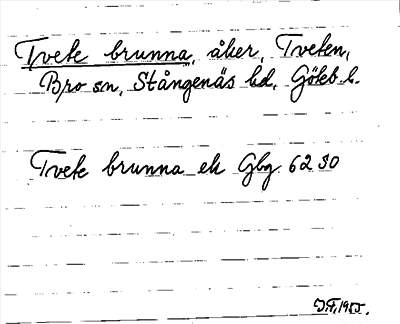 Tvete brunna, åker, Tveten,
Bro sn, Stångenäs hd, Göteb. l.
Tvete brunna ek Gbg 62 30